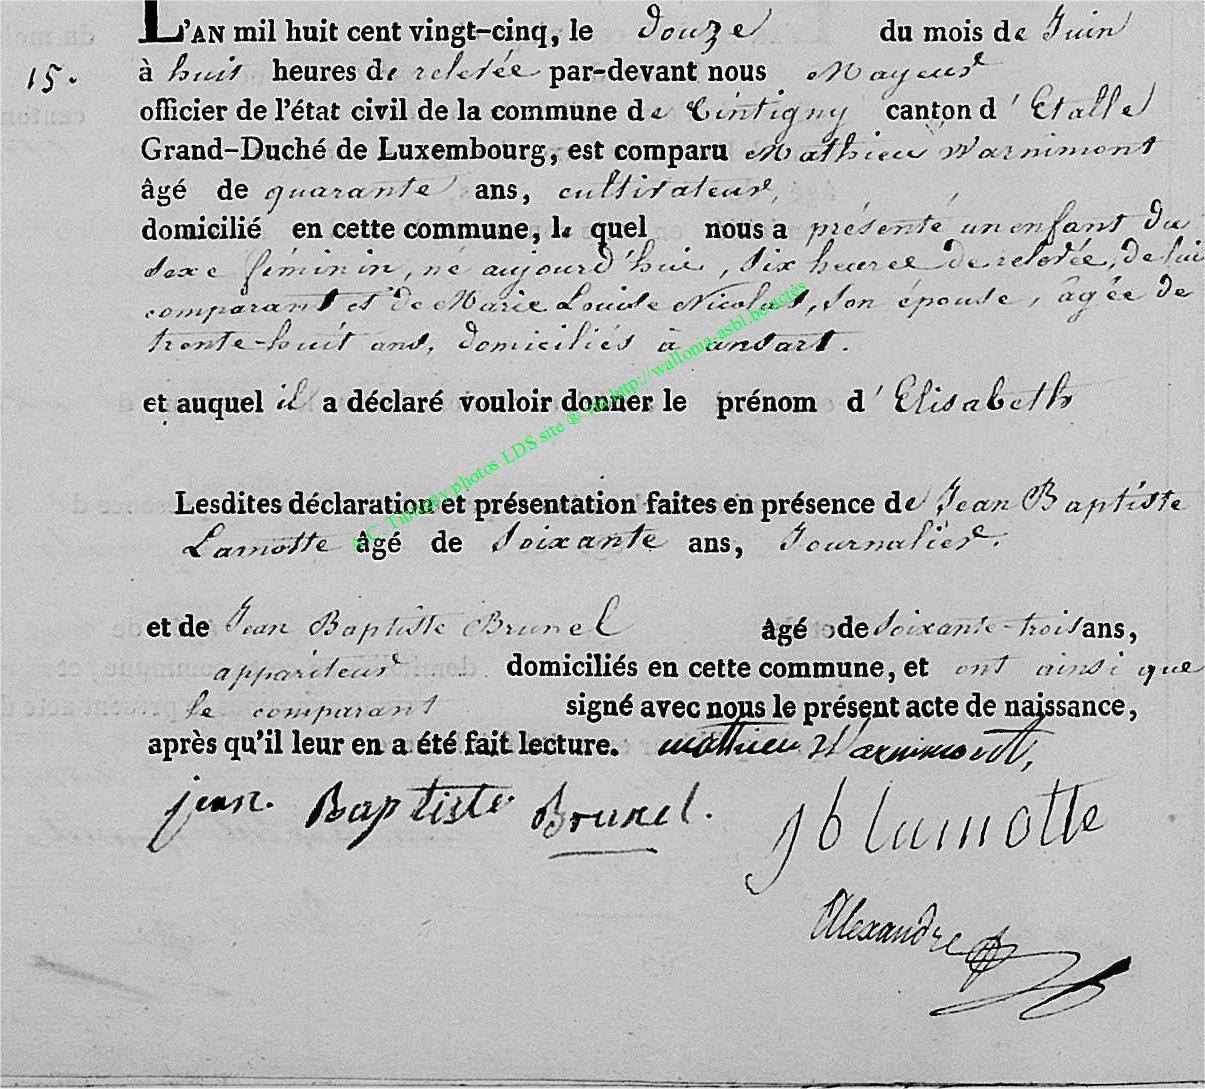 L'AN mil huit cent vingt-cinq, le douze du mois de Juin
15. à huit heures de relevée par-devant nous Mayeur
officier de l'état civil de la commune de Tintigny canton d'Etalle
Grand-Duché de Luxembourg, est comparu Mathieu Warnimont
âgé de quarante ans, cultivateur,
domicilié en cette commune, le quel nous a présenté un enfant du
sexe féminin, né aujourd'hui, six heures de relevée, de lui
comparant et de Marie Louise Nicolas, son épouse, âgée de
trente-huit ans, domiciliés à ansart.
et auquel il a déclaré vouloir donner le prénom d'Elisabeth
Lesdites déclaration et présentation faites en présence de Jean Baptiste
Lamotte âgé de soixante ans, Journalier.
et de Jean Baptiste Brunel âgé de soixante-trois ans,
appariteur domiciliés en cette commune, et ont ainsi que
le comparant signé avec nous le présent acte de naissance,
après qu'il leur en a été fait lecture. mathieu Warnimont,
jean Baptiste Brunel.
Jb lamotte
Alexandre
A.C. Tintigny photos LDS site ® via http://wallonia-asbl.be/actes